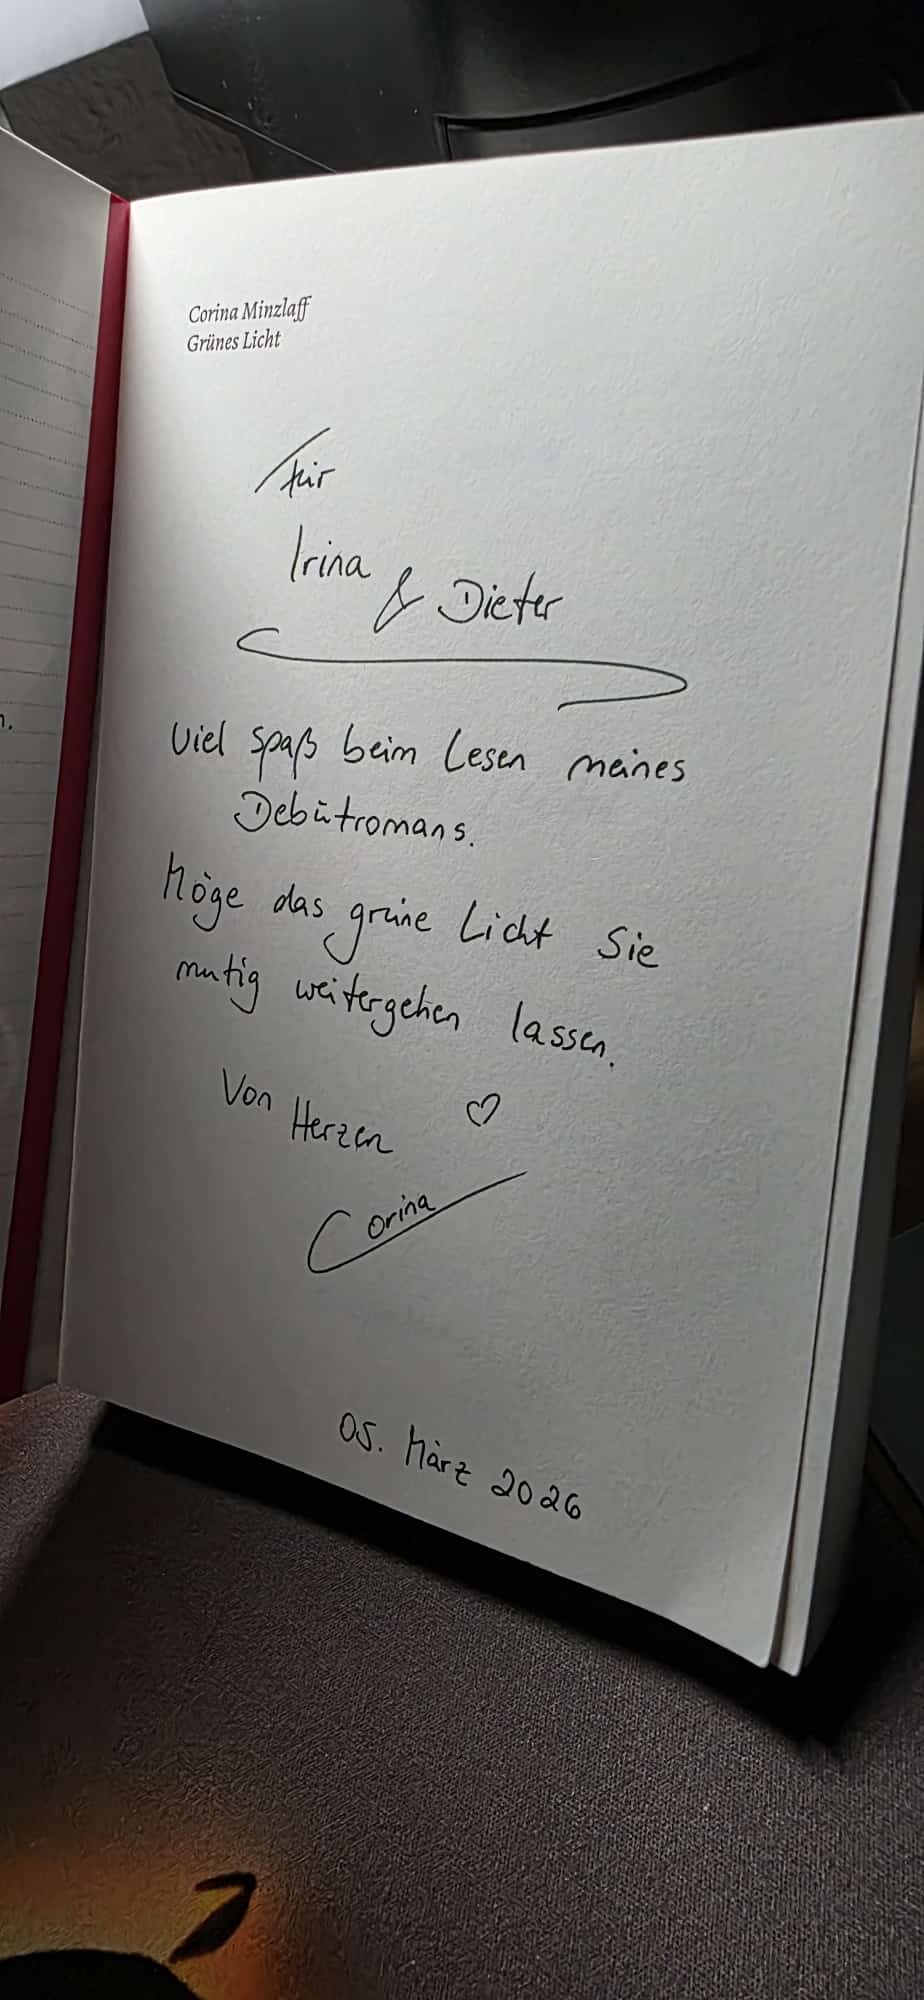 Corina Minzlaff
Grünes Licht
Für
Irina
& Dieter
Viel Spaß beim Lesen meines
Debütromans.
Möge das grüne Licht Sie
mutig weitergehen lassen.
Von Herzen ♡
Corina
05. März 2026